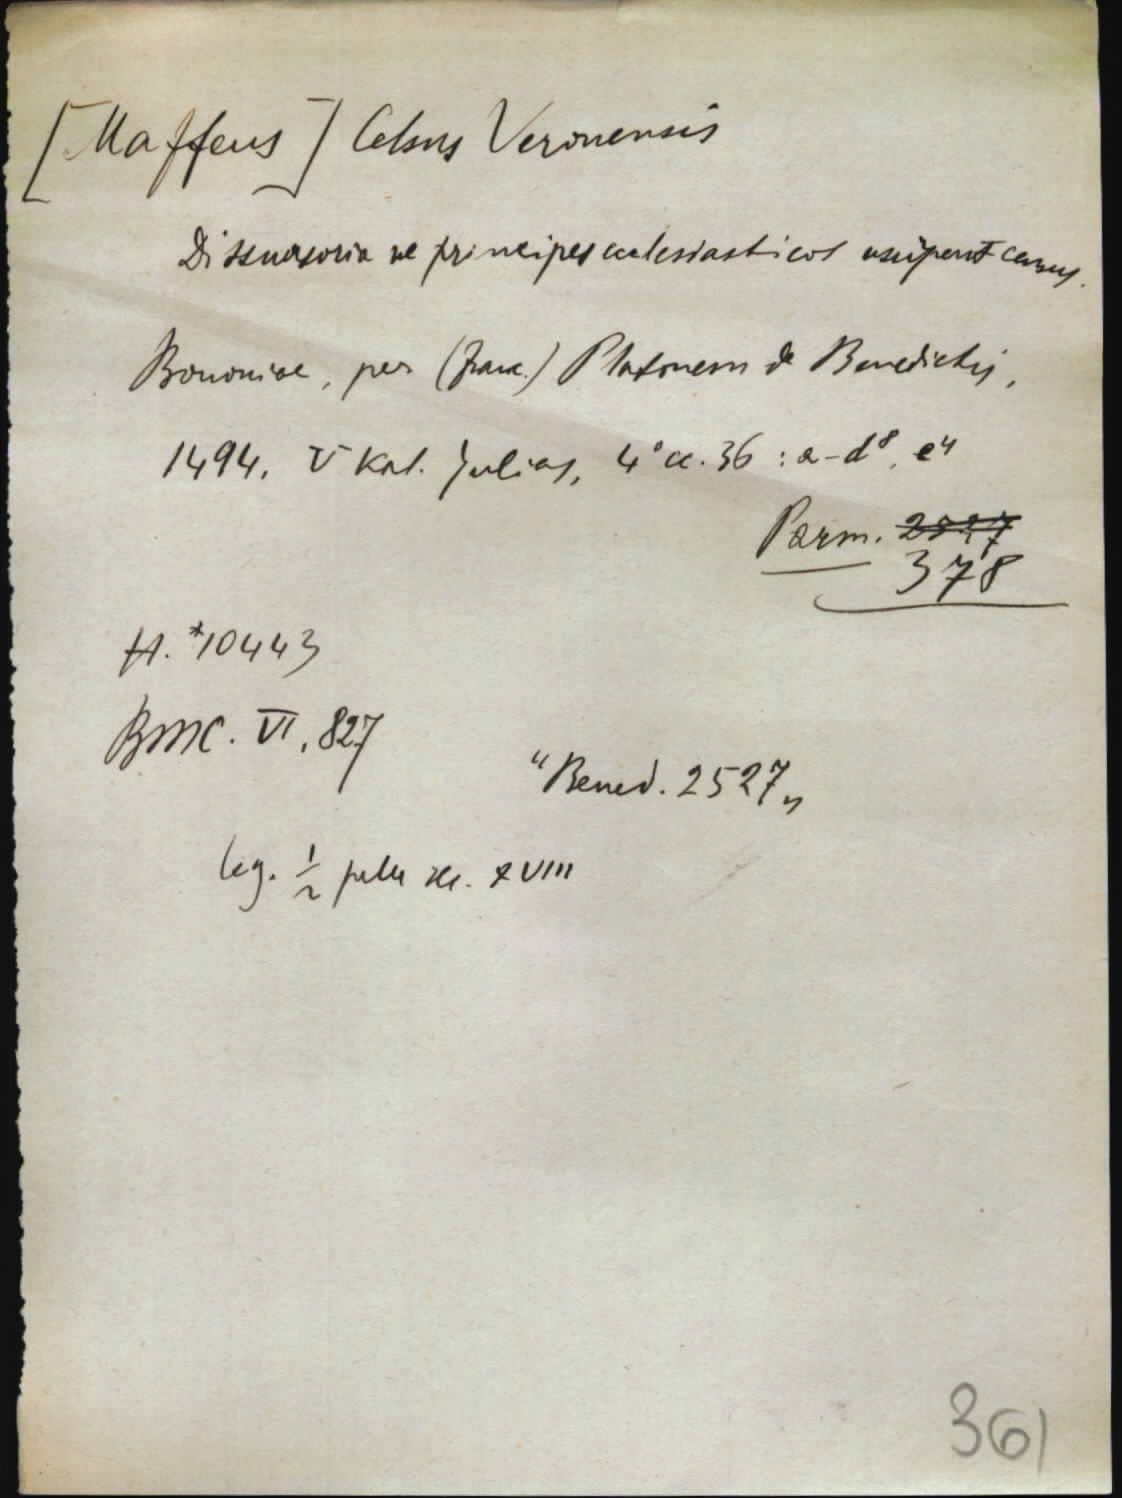 [Maffeus] Celsus Veronensis
Dissuasoria ne principes ecclesiasticos usurpent census.
Bononiae, per (Franc.) Platonem de Benedictis,
1494, V Kal. Julias, 4° cc. 36 : a-d⁸, e⁴
Parm. 2527
378
H. *10443
BMC. VI, 827
"Bened. 2527"
leg. ½ pelle sec. XVIII
361